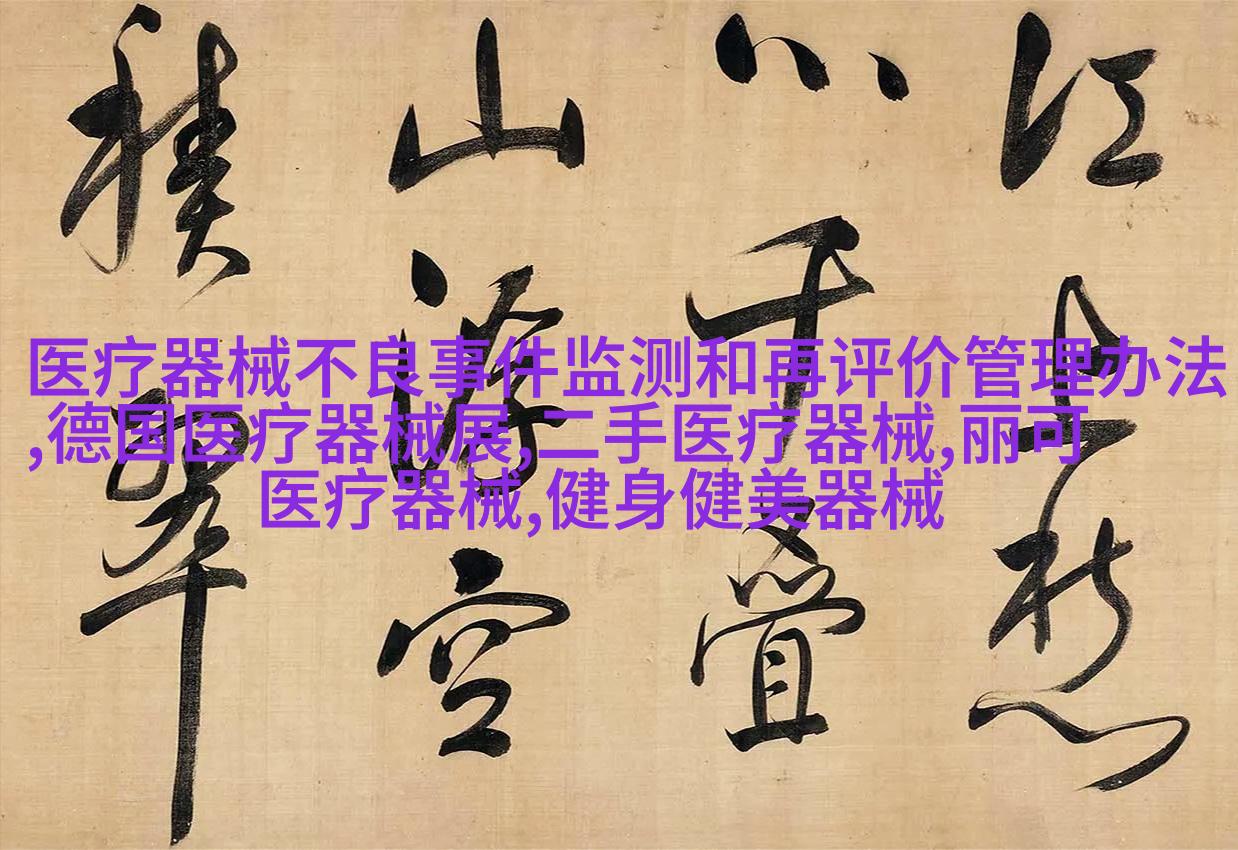 医疗器械不良事件监测和再评价管理办法
,德国医疗器械展,二手医疗器械,丽可
医疗器械,健身健美器械
江上愁
心千疊
山浮空
積翠